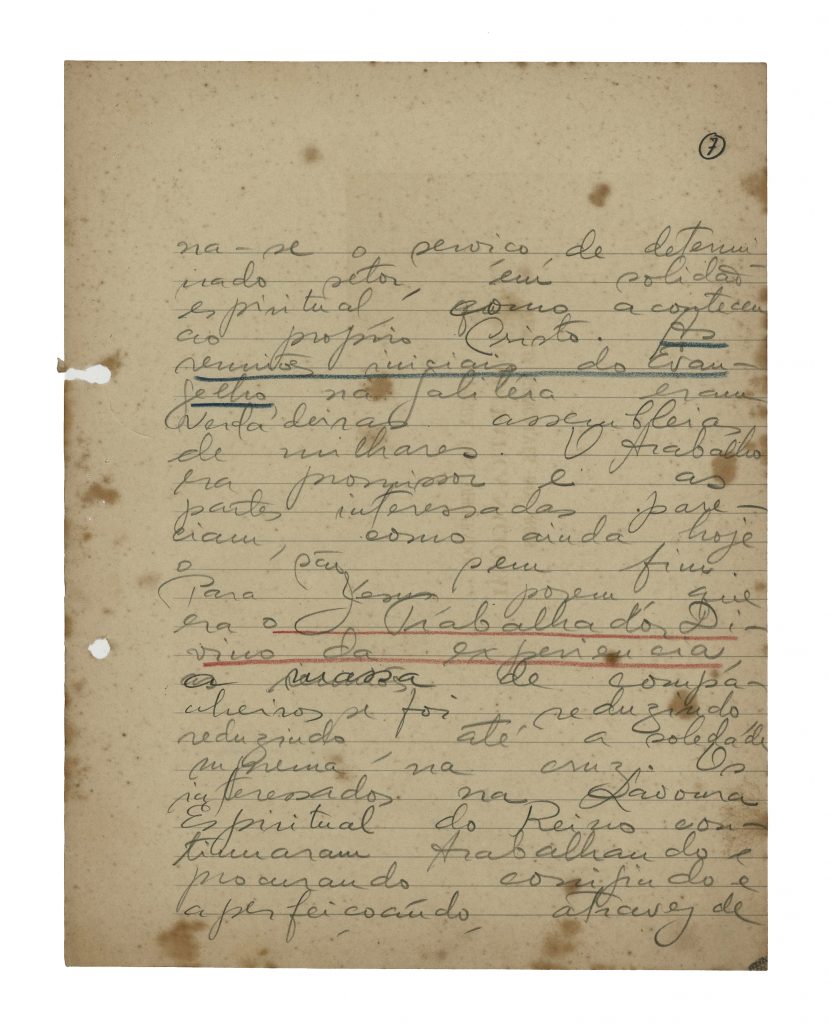 7
na-se o serviço de determi
nado setor, em solidão
espiritual, como aconteceu
ao próprio Cristo. As
reuniões iniciais do Evan-
gelho na Galiléia eram
verdadeiras assembleias
de milhares. O trabalho
era promissor e as
partes interessadas pare-
ciam, como ainda hoje
o são, sem fim.
Para Jesus porem que
era o Trabalhador Di-
vino da experiencia
a massa de compa-
nheiros se foi reduzindo
reduzindo até a soledade
suprema na cruz. Os
interessados na Lavoura
Espiritual do Reino con-
tinuaram trabalhando e
procurando corrigindo e
aperfeiçoando, através de